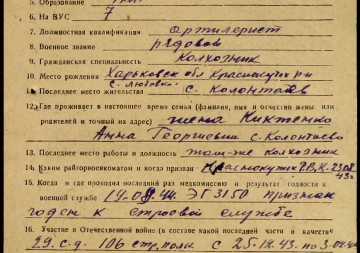 5. Образование
6. На ВУС 7
7. Должностная квалификация артилерист
8. Военное звание рядовой
9. Гражданская специальность колхозник
10. Место рождения Харьковск обл Краснокутск р-н
с. Любовка
11. Последнее место жительства с. Колонтаев
12. Где проживает в настоящее время семья (фамилия, имя и отчество жены или
родителей и точный их адрес) жена Никтенко
Анна Георгиевна с. Колонтаево
13. Последнее место работы и должность там-же колхозник
14. Каким райгорвоенкоматом и когда призван Краснокутск РВК 23.08
43 г
15. Когда и где проходил последний раз медкомиссию и результат годности к
военной службе 14.09.44. ЭГ 3150 признан
годен к строевой службе
16. Участие в Отечественной войне (в составе какой последней части и в качестве
29 с.д. 106 стр. полк с 25.12.43 по 3.04.44